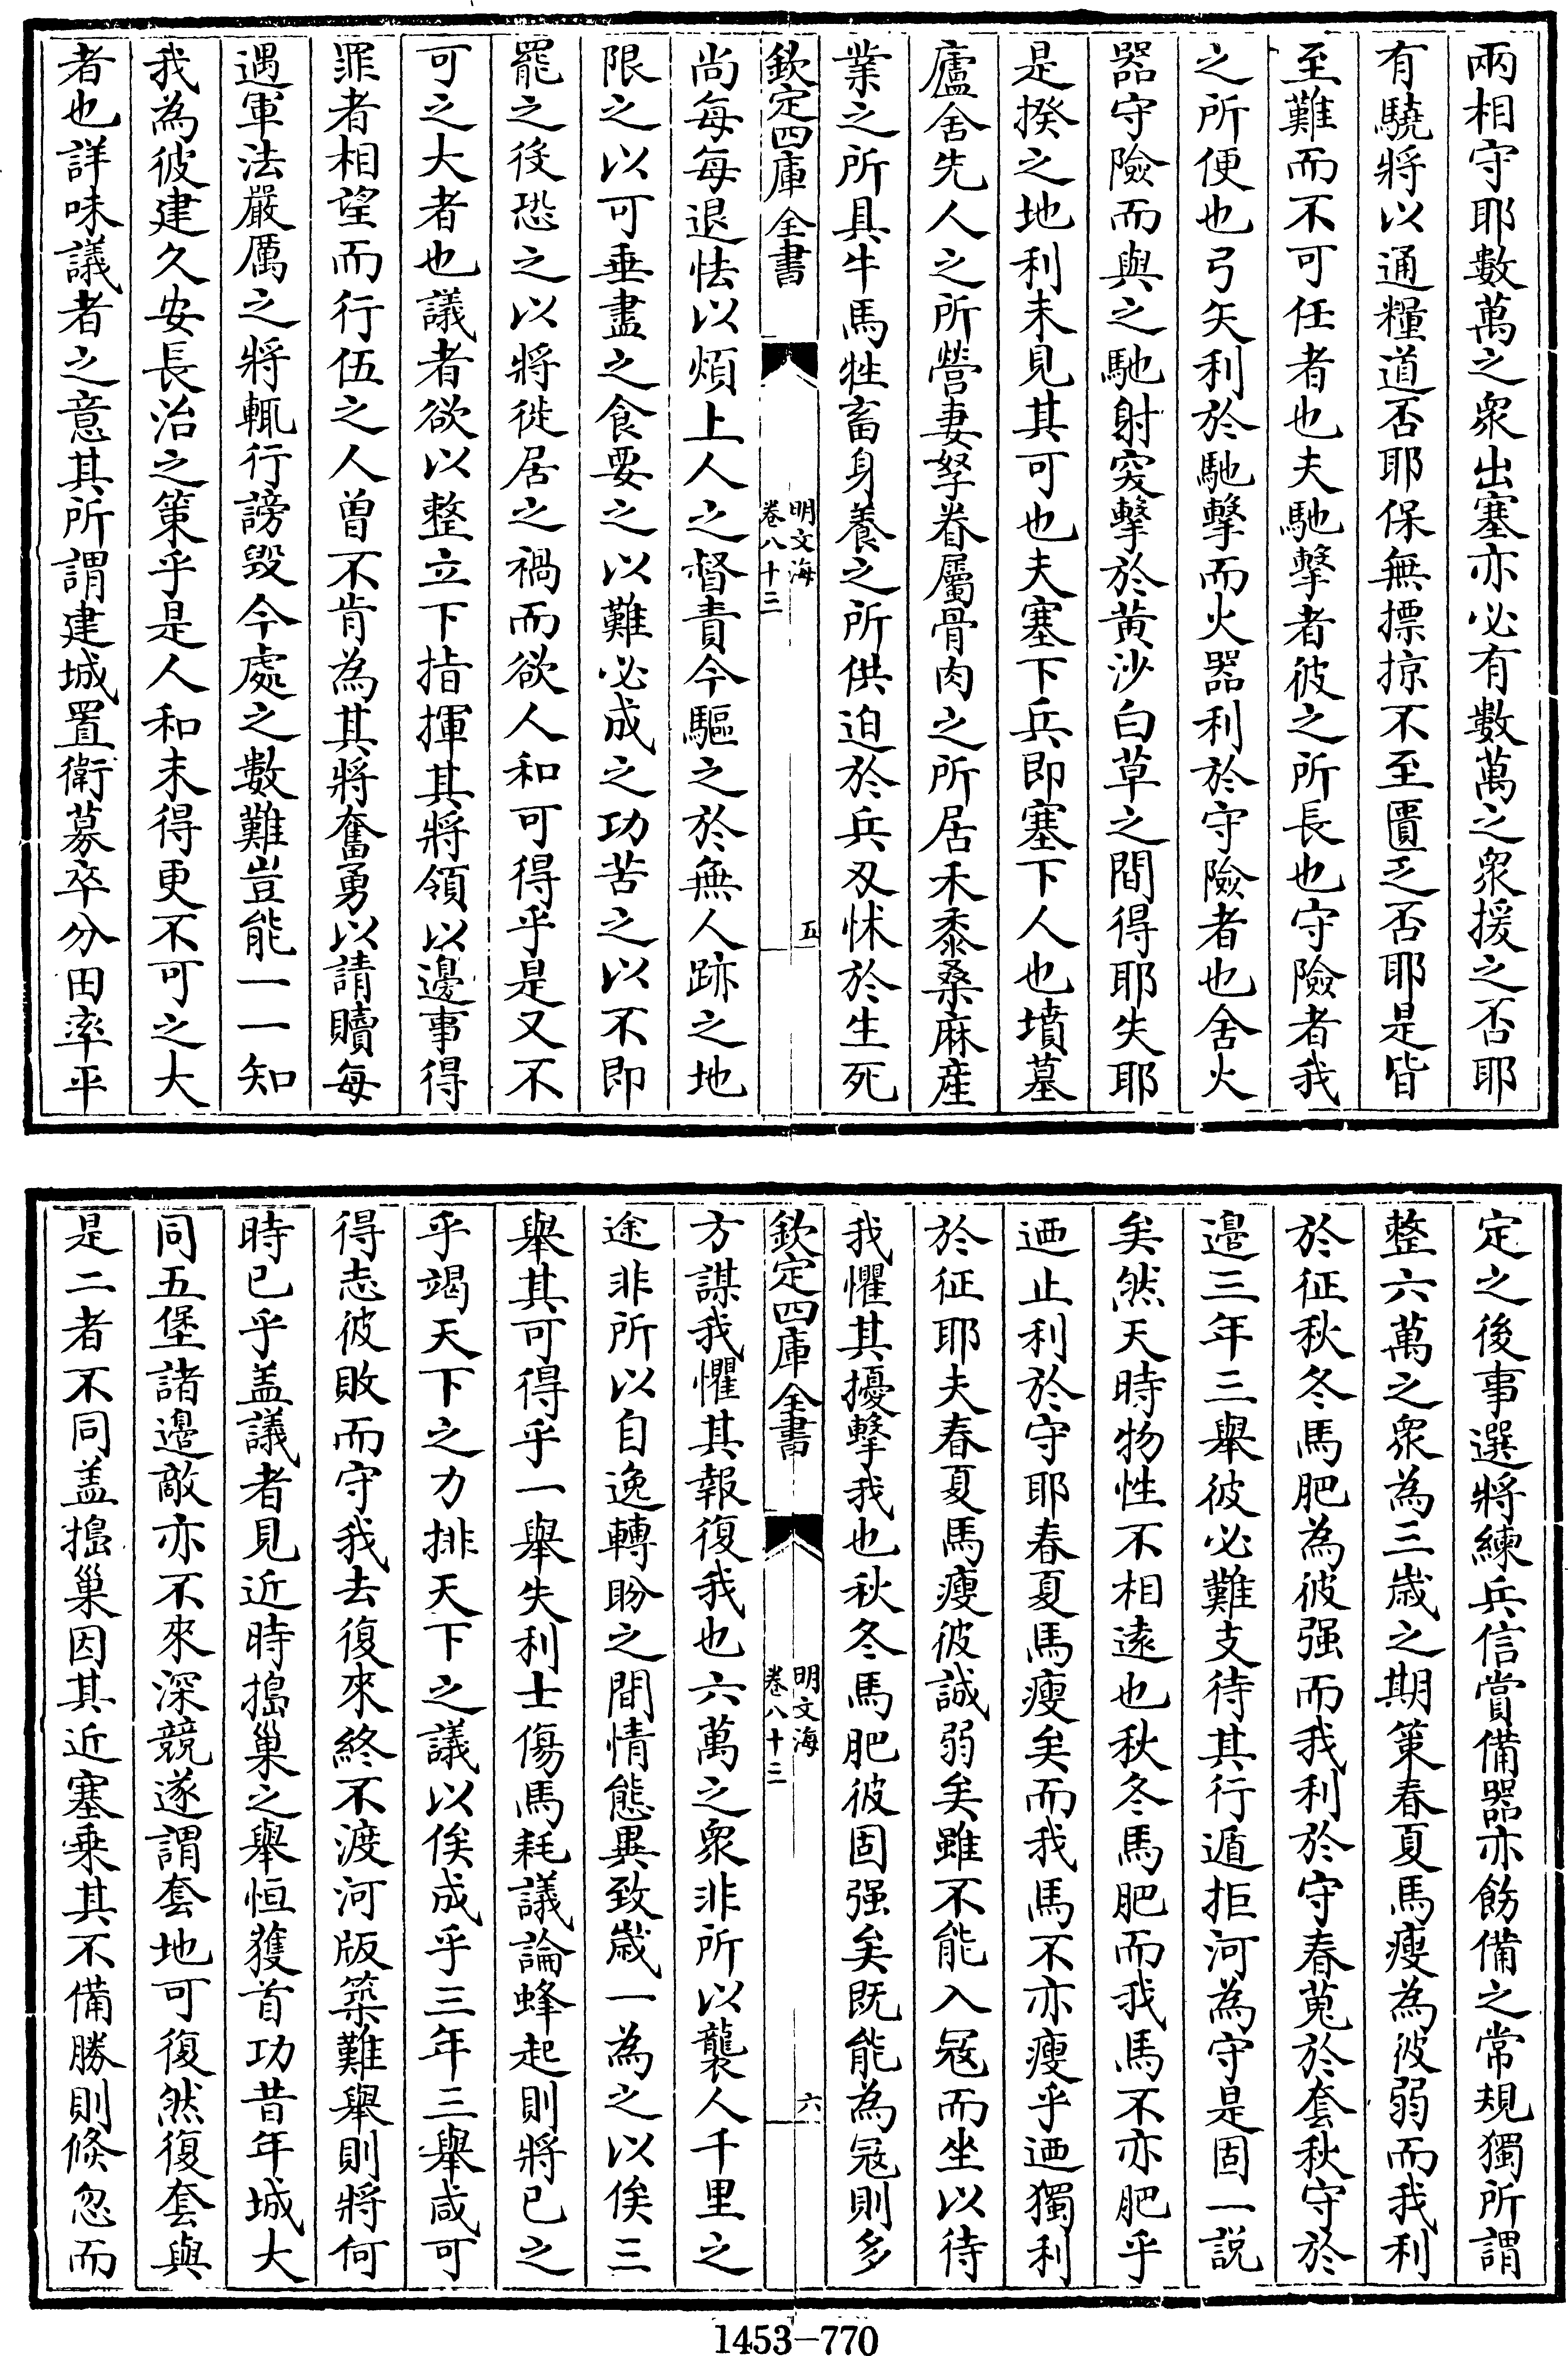 兩相守耶數萬之衆出塞亦必有數萬之衆援之否耶
有驍將以通糧道否耶保無摽掠不至匱乏否耶是皆
至難而不可任者也夫馳擊者彼之所長也守險者我
之所便也弓矢利於馳擊而火器利於守險者也舍火
器守險而與之馳射突擊於黄沙白草之間得耶失耶
是揆之地利未見其可也夫塞下兵即塞下人也墳墓
廬舍先人之所營妻孥眷屬骨肉之所居禾黍桑麻産
業之所具牛馬牲畜身養之所供迫於兵刄怵於生死
欽定四庫全書
明文海
卷八十三
五
尚每每退怯以煩上人之督責今驅之於無人跡之地
限之以可垂盡之食要之以難必成之功苦之以不即
罷之後恐之以將徙居之禍而欲人和可得乎是又不
可之大者也議者欲以整立下指揮其將領以邊事得
罪者相望而行伍之人曾不肯為其將奮勇以請贖每
遇軍法嚴厲之將輒行謗毀今處之數難豈能一一知
我為彼建久安長治之策乎是人和未得更不可之大
者也詳味議者之意其所謂建城置衛募卒分田率平
定之後事選將練兵信賞備器亦飭備之常規獨所謂
整六萬之衆為三歲之期策春夏馬瘦為彼弱而我利
於征秋冬馬肥為彼强而我利於守春蒐於套秋守於
邉三年三舉彼必難支待其行遁拒河為守是固一説
矣然天時物性不相逺也秋冬馬肥而我馬不亦肥乎
迺止利於守耶春夏馬瘦矣而我馬不亦瘦乎迺獨利
於征耶夫春夏馬瘦彼誠弱矣雖不能入冦而坐以待
我懼其擾擊我也秋冬馬肥彼固强矣既能為冦則多
欽定四庫全書
明文海
卷八十三
六
方謀我懼其報復我也六萬之衆非所以襲人千里之
途非所以自逸轉盼之間情態異致歲一為之以俟三
舉其可得乎一舉失利士傷馬耗議論蜂起則將已之
乎竭天下之力排天下之議以俟成乎三年三舉咸可
得志彼敗而守我去復來終不渡河版築難舉則將何
時已乎盖議者見近時搗巢之舉恒獲首功昔年城大
同五堡諸邉敵亦不來深競遂謂套地可復然復套與
是二者不同盖搗巢因其近塞乗其不備勝則倏忽而
1453—770